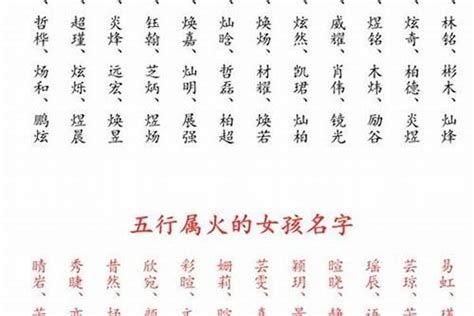 哲桦、炀和、鹏炫
超瑾、炫烁、煜晨
炎烽、远宏、焕昱
钰翰、芝炳、煜炀
焕嘉、灿明、展强
灿晗、哲磊、柏超
焕炀、材耀、焕若
炫然、凯珺、
威耀、肖伟、镜光
煜铭、木炜、励谷
炫奇、柏德、炎煜
林铭、彬木、灿烽
五行属火的女孩名字
晴岩、
秀睫、
昔然、
欣宛、
彩暄、
姗莉、
芸雯、
颖玥、
暄晓、
瑶辰、
芸琼、
易虹、